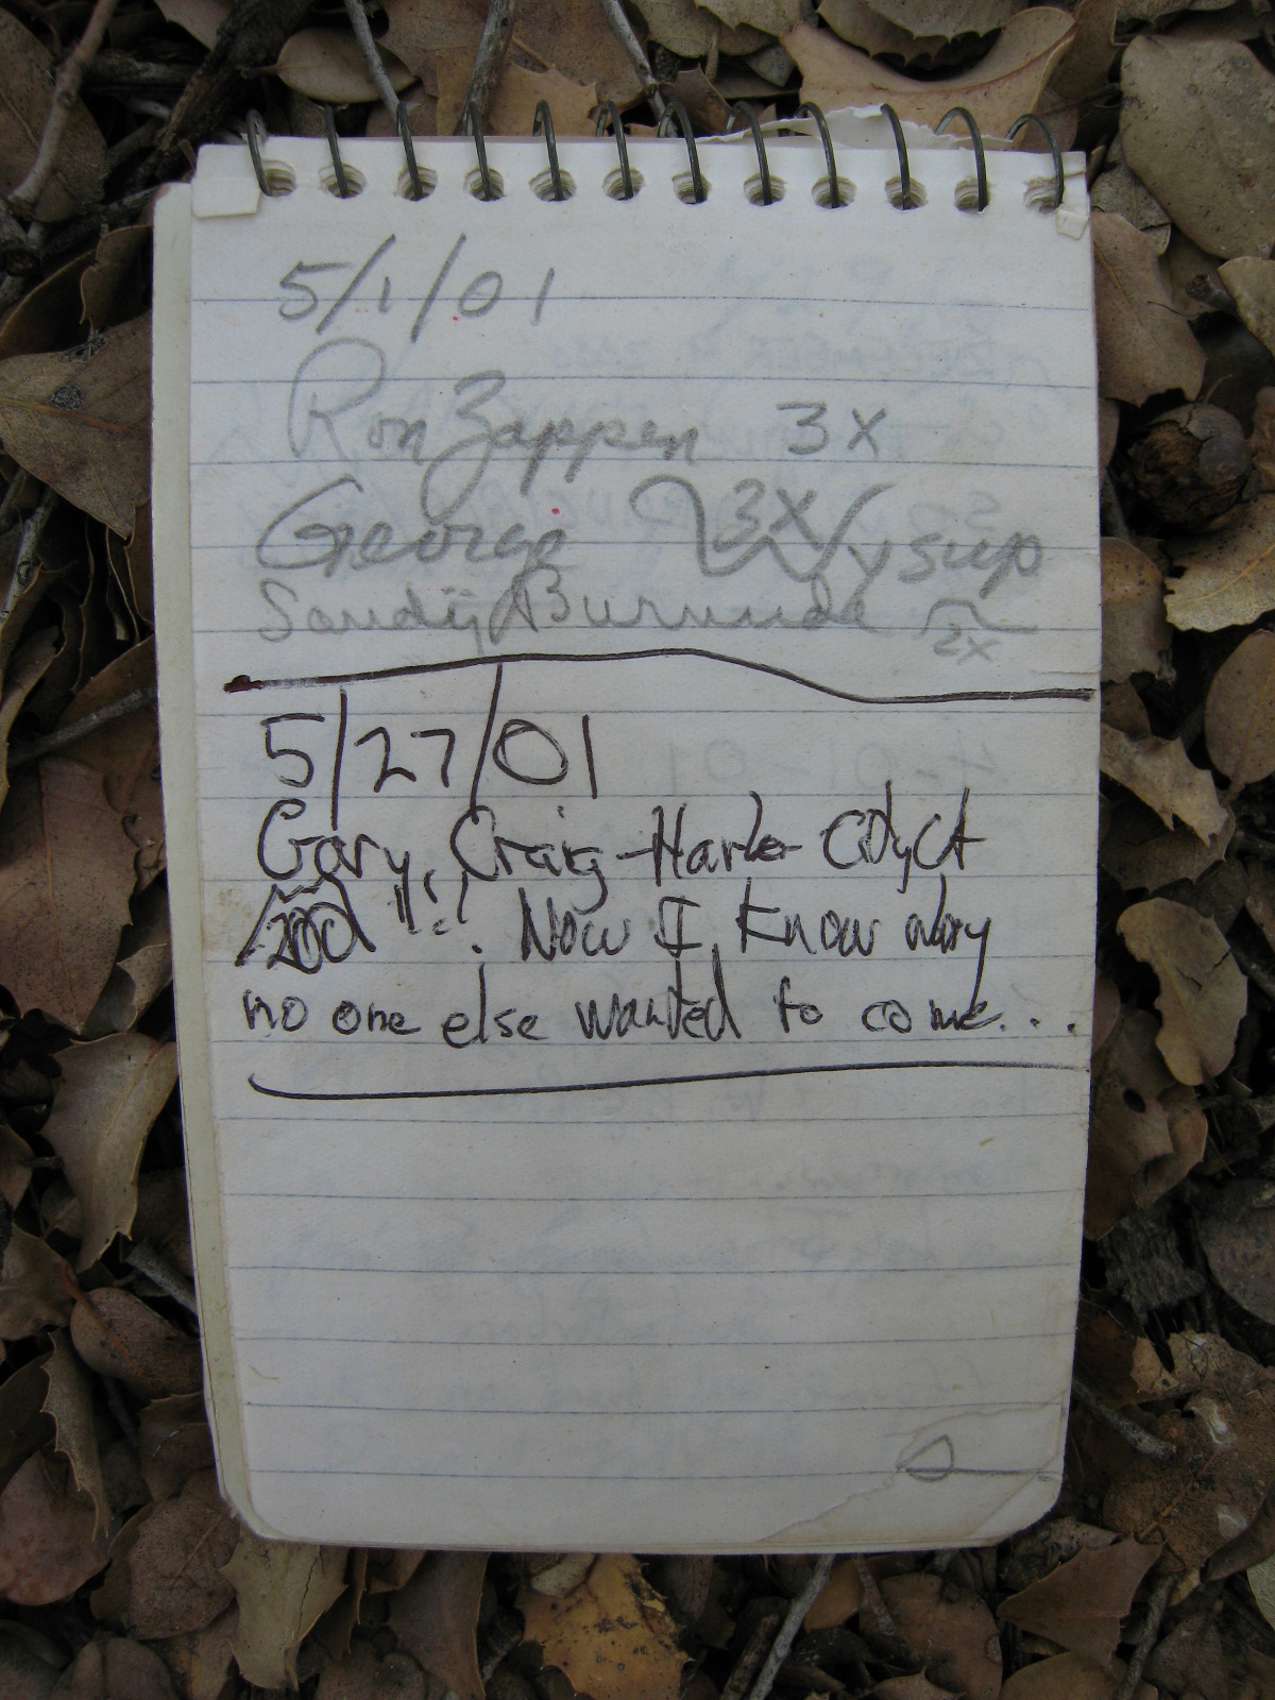 5/1/01
Ron Zappen 3x
George 3x
Sandy 2x
5/27/01
Gary, Craig
!! Now I know why
no one else wanted to come...